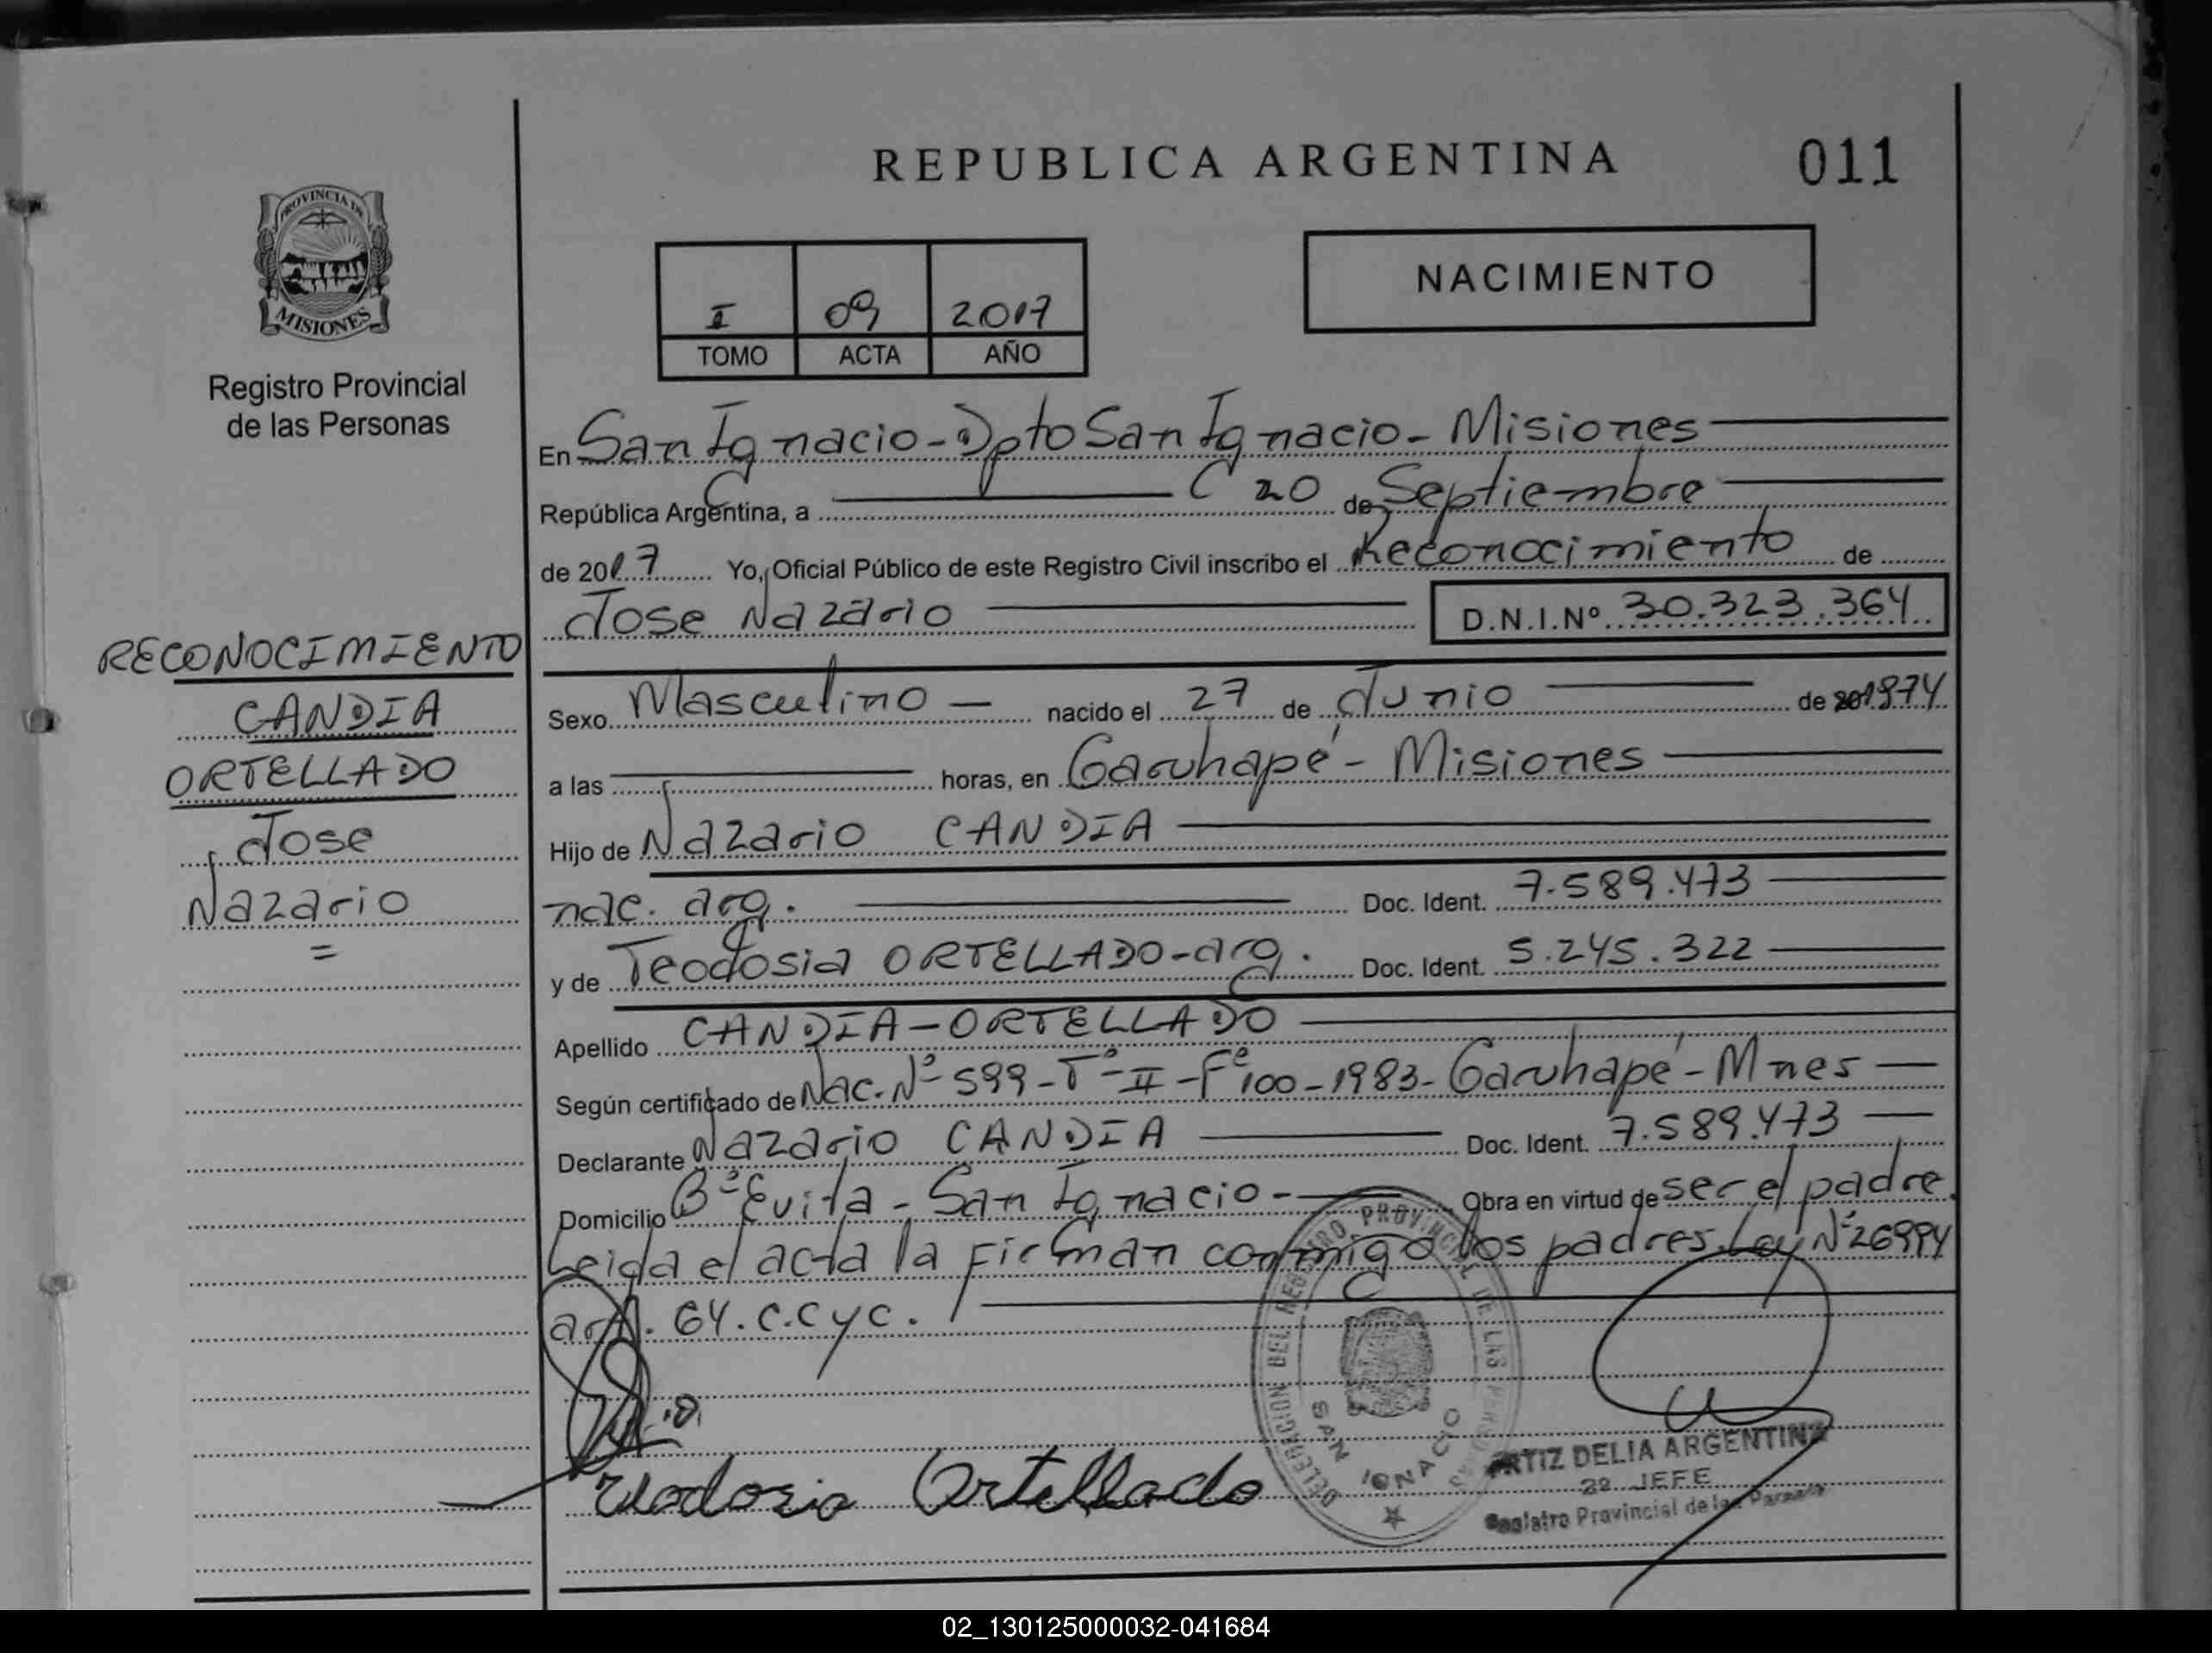 REPUBLICA ARGENTINA
011
PROVINCIA DE
MISIONES
Registro Provincial
de las Personas
NACIMIENTO
I 09 2017
TOMO ACTA AÑO
En San Ignacio - Dpto San Ignacio - Misiones
República Argentina, a 20 de Septiembre
de 2017 Yo, Oficial Público de este Registro Civil inscribo el Reconocimiento de
Jose Nazario D.N.I.Nº 30.323.364
RECONOCIMIENTO
CANDIA
ORTELLADO
Jose
Nazario
=
Sexo Masculino - nacido el 27 de Junio de 1974
a las horas, en Garuhapé - Misiones
Hijo de Nazario CANDIA
nac. arg. Doc. Ident. 7.589.473
y de Teodosia ORTELLADO - arg. Doc. Ident. 5.245.322
Apellido CANDIA - ORTELLADO
Según certificado de Nac. Nº 599 - Tº II - Fº 100 - 1983 - Garuhapé - Mnes
Declarante Nazario CANDIA Doc. Ident. 7.589.473
Domicilio Bº Evita - San Ignacio - Obra en virtud de ser el padre.
Leida el acta la firman conmigo los padres. Ley Nº 26994
art. 64. C.C y C.
Teodosia Ortellado
DELEGACION DEL REGISTRO PROVINCIAL DE LAS PERSONAS
SAN IGNACIO
ORTIZ DELIA ARGENTINA
2º JEFE
Registro Provincial de las Personas
02_130125000032-041684